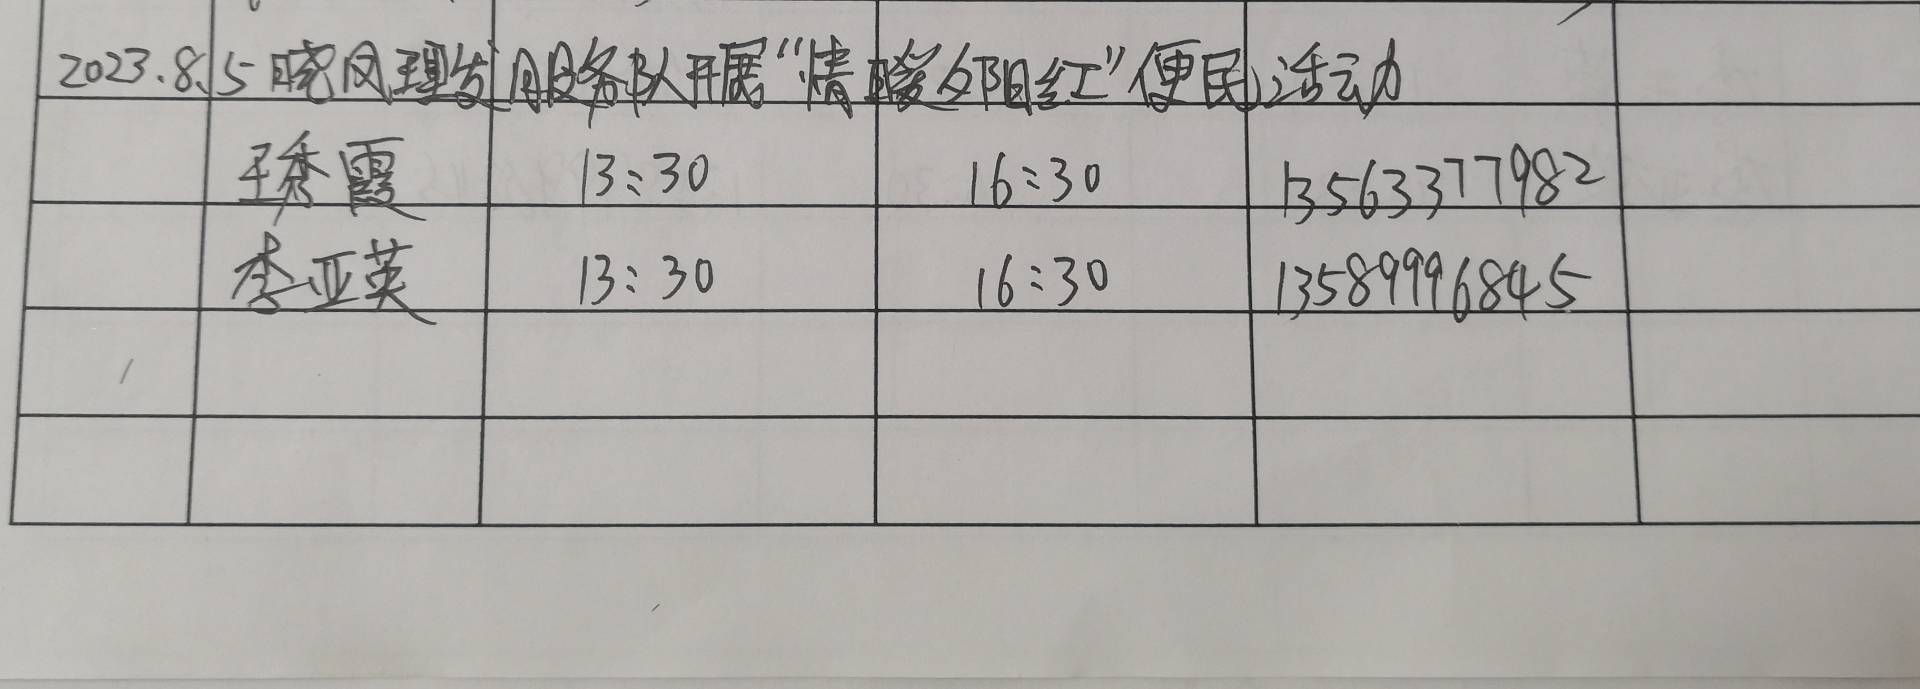 2023.8.5晓风理发服务队开展“情暖夕阳红”便民活动
王秀霞 13:30 16:30 13563377982
李亚英 13:30 16:30 13589996845